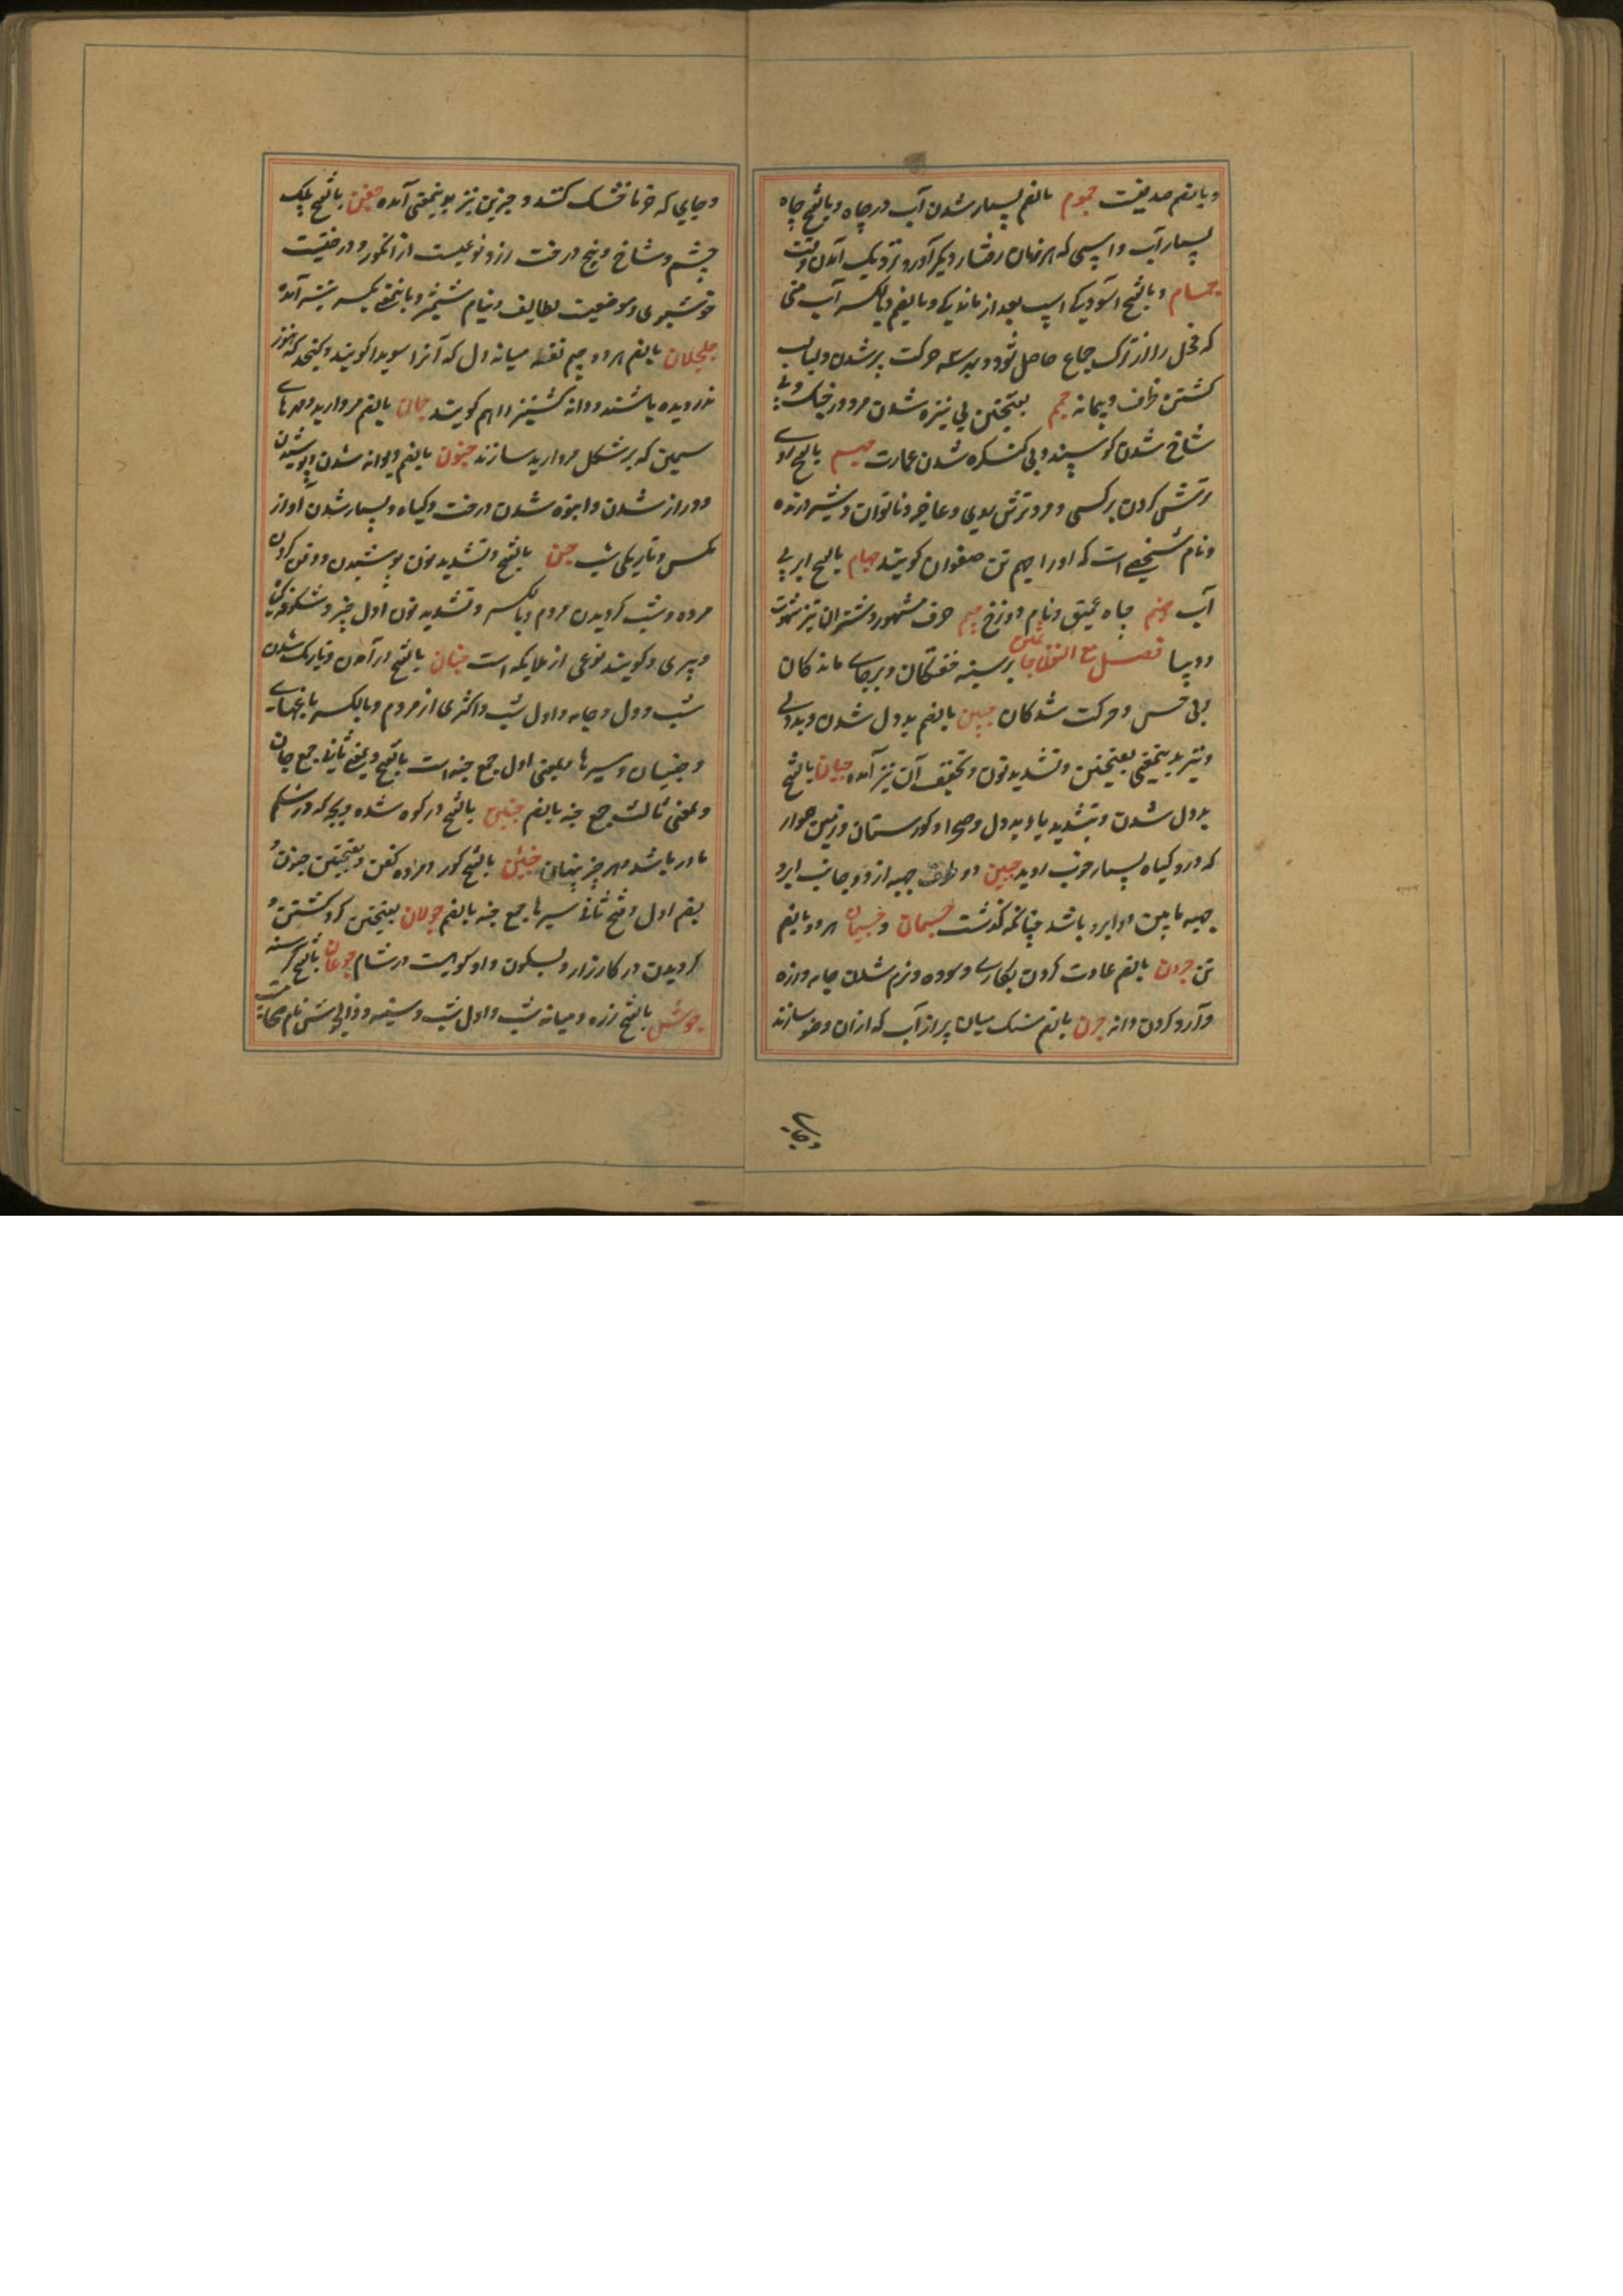 وبالضم صدفیست جموم بالضم بسیار شدن آب در چاه و بالفتح چاه
بسیار آب و اسپی که هر زمان رفتار دیگر آورد و نزدیک آمدن وقت
جمام و بالفتح آسودگی اسپ بعد از ماندگی و بالضم و بالکسر آب منی
که فحل را از ترک جماع حاصل شود و بهر سه حرکت پر شدن و لبالب
کشتن ظرف و پیمانه جمم بفتحتین بی نیزه شدن مرد در جنگ و بی
شاخ شدن کوسپند و بی کنکره شدن عمارت جهم بالفتح روی
ترش کردن بر کسی و مرد ترش روی و عاجز و ناتوان و شیر درنده
و نام شخصی است که او را جهم بن صفوان کویند جهام بالفتح ابر بی
آب جهنم چاه عمیق و نام دوزخ جیم حرف مشهور و شتران تیز شهوت
و دیبا فصل مع النون جاثمین بر سینه خفتکان و بر جای ماندکان
و بی حس و حرکت شدکان جبن بالضم بد دل شدن و بد دلی
و پنیر و بدینمعنی بضمتین و تشدید نون و تخفیف آن نیز آمده جبان بالفتح
بد دل شدن و بتشدید با و بد دل و صحرا و کورستان و زمین هموار
که درو کیاه بسیار خوب روید جبین دو طرف جبهه از دو جانب ابرو
جبهه مابین دو ابرو باشد چنانکه کذشت جسمان و جسیمان هر دو بالضم
تن جرون بالضم عادت کردن بکاری و سوده و نرم شدن جامه و زره
و آرد کردن دانه جرن بالضم سنک میان پر از آب که از ان وضو سازند
و جای که خرما خشک کنند و جرین نیز بدینمعنی آمده جفن بالفتح پلک
چشم و شاخ و بیخ درخت رز و نوعیست از انکور و درختیست
خوشبوی و موضعیست بطایف و نیام شمشیر و باینمعنی بکسر نیز آمده
جلجلان بالضم هر دو جیم نقطه میانه دل که آنرا سویدا کویند و کنجد که هنوز
ندرویده باشند و دانه کشنیز را هم کویند جمان بالضم مروارید و مهرهای
سیمین که بر شکل مروارید سازند جنون بالضم دیوانه شدن و پوشیدن
و دراز شدن و انبوه شدن درخت و کیاه و بسیار شدن آواز
مکس و تاریکی شب جن بالفتح و تشدید نون پوشیدن و دفن کردن
مرده و شب کردیدن مردم و بالکسر و تشدید نون اول چیز و شکوفه کیاه
و پری و کویند نوعی از ملایکه است جنان بالفتح در آمدن و تاریک شدن
شب و دل و جامه و اول شب و اکثری از مردم و بالکسر باغهای
و جنیان و سپرها و بمعنی اول جمع جنه است بالفتح و بمعنی ثانی جمع جان
و بمعنی ثالث جمع جنه بالضم جنین بالفتح در کوه شده و بچه که در شکم
مادر باشد و هر چیز پنهان جنن بالفتح کور و مرده کفن و بضمتین جنون و
بضم اول و فتح ثانی سپرها جمع جنه بالضم جولان بفتحتین کرد کشتن و
کردیدن در کارزار و بسکون واو کوهیست در شام جوعان بالفتح کرسنه
جوشن بالفتح زره و میانه شب و اول شب و سینه و ذالجوشن نام صحابیست